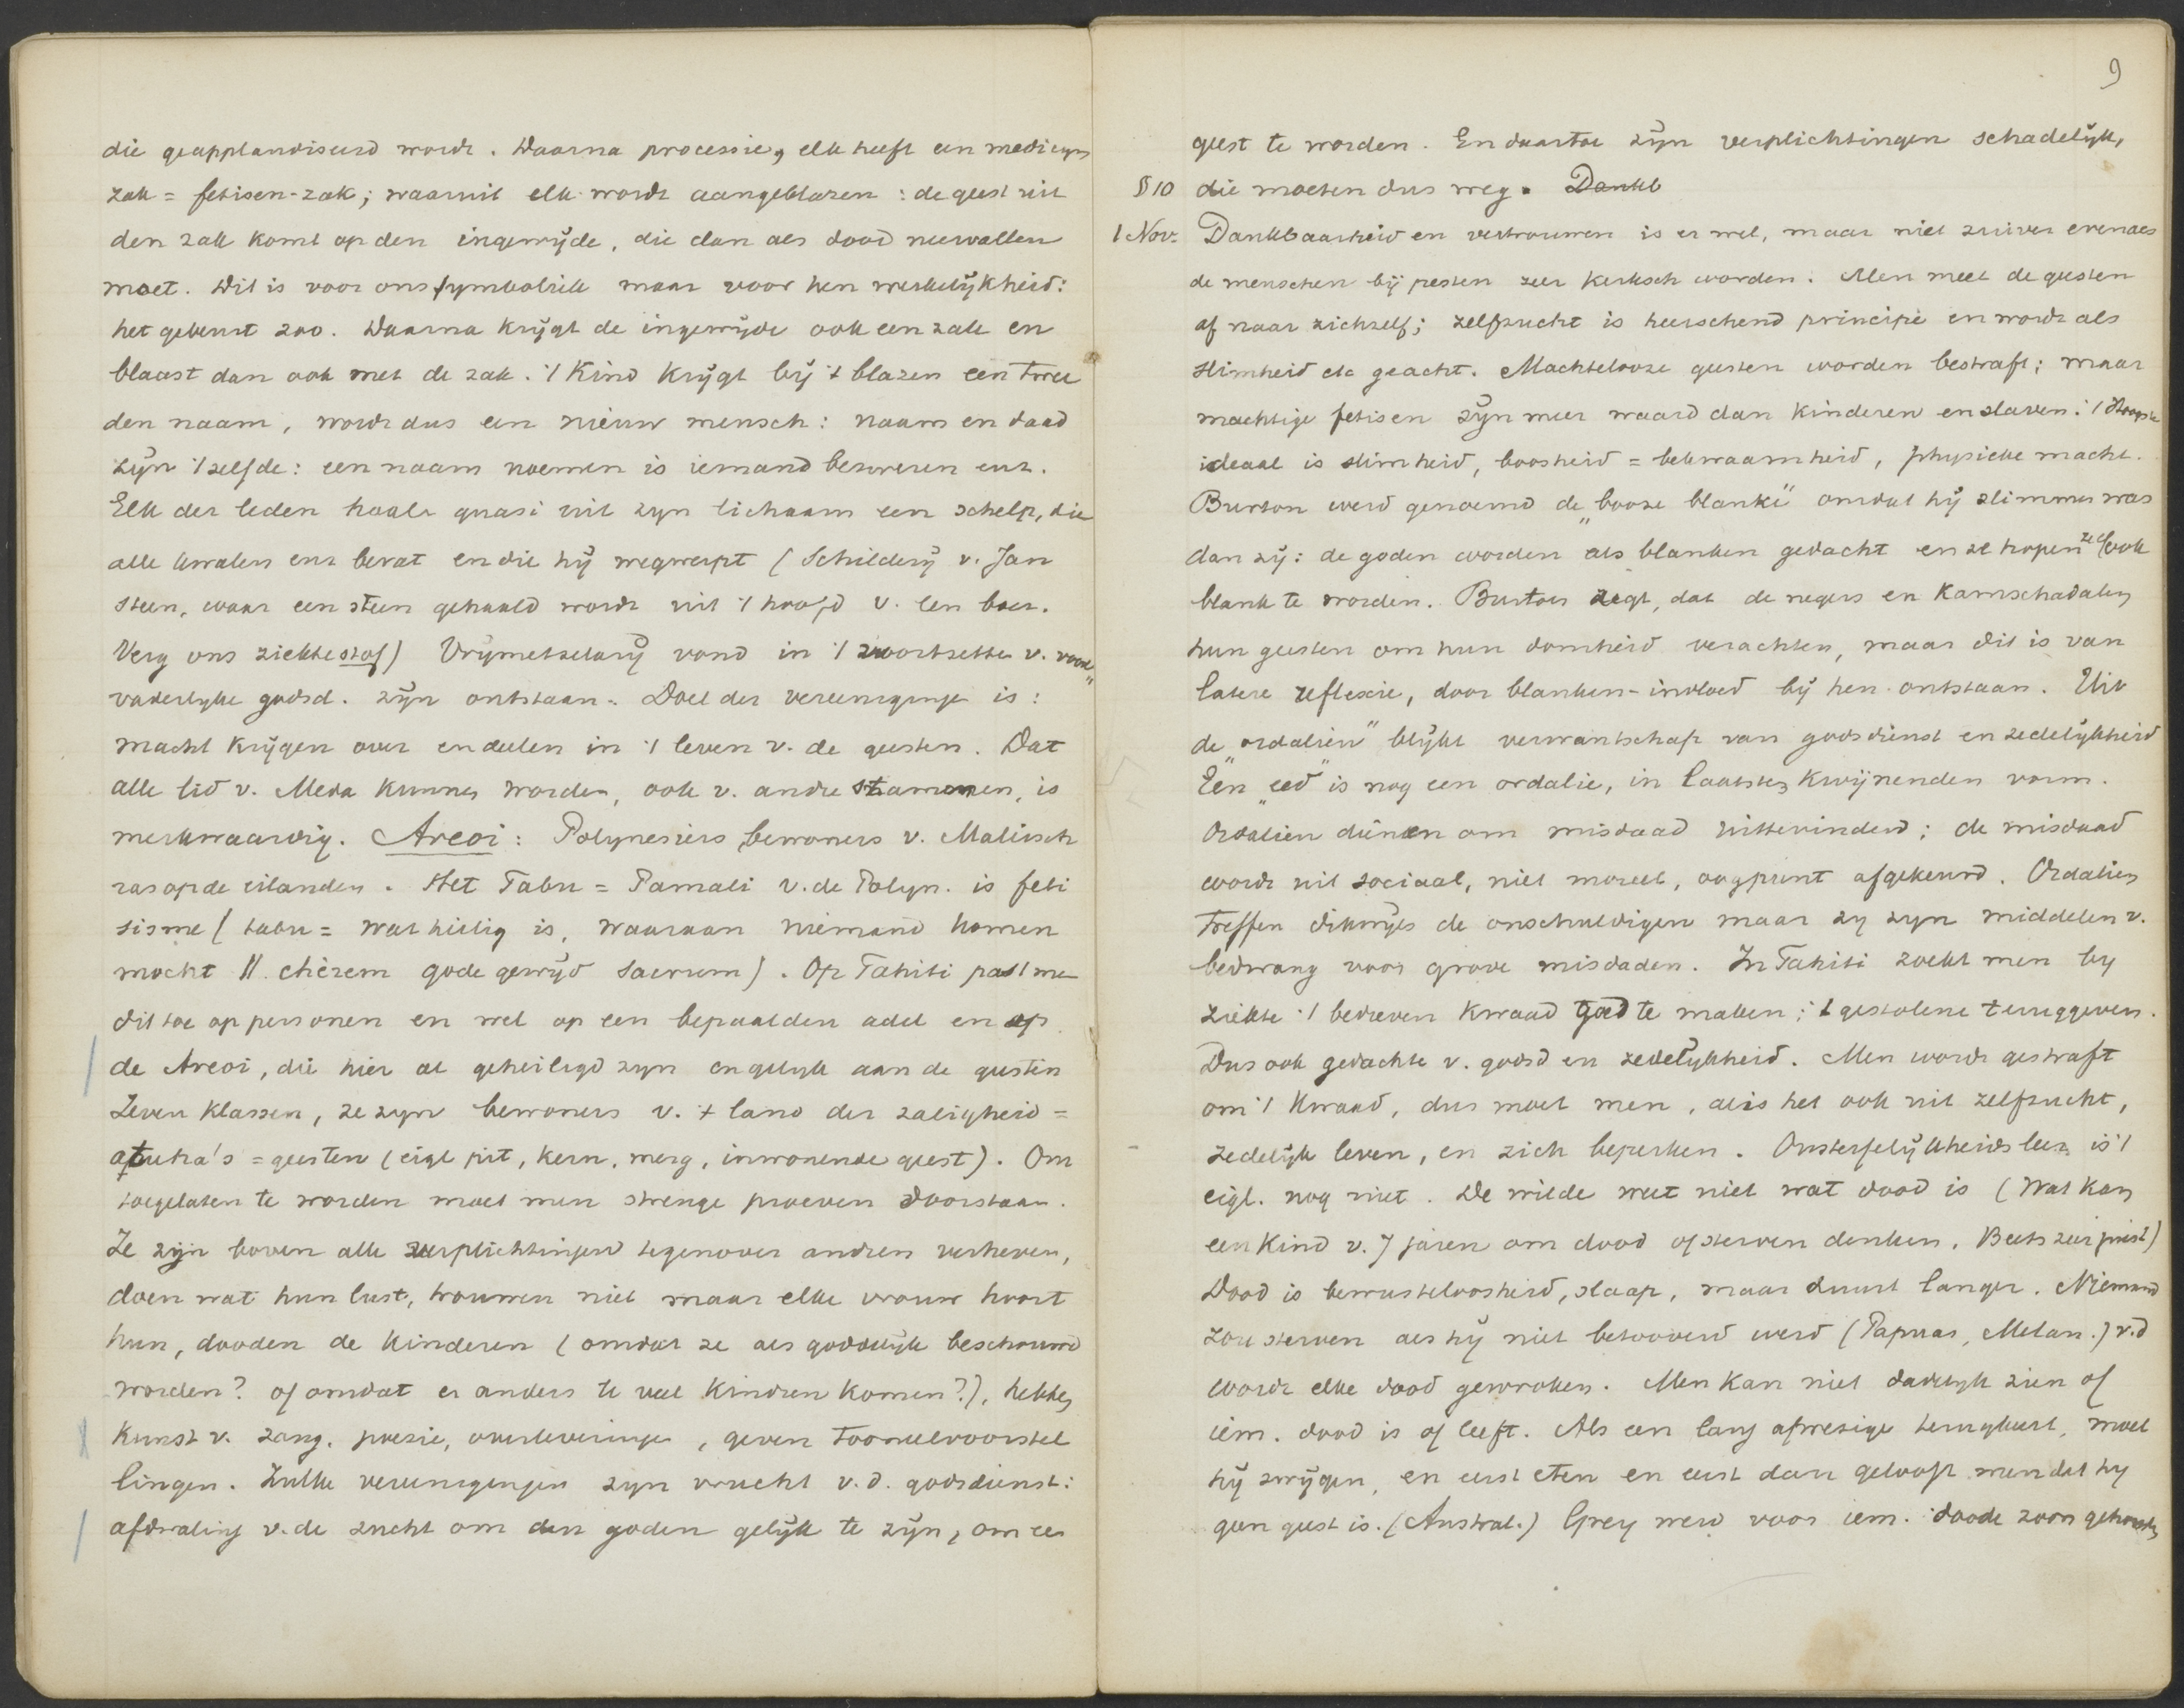 die geapplaudiseerd wordt. Daarna processie, elk heeft een medicyn
zak = fetisen-zak; waaruit elk wordt aangeblazen: de geest uit
den zak komt op den ingewijde, die dan als dood neervallen
moet. Dit is voor ons symboliek maar voor hen werkelijkheid:
het gebeurt zoo. Daarna krijgt de ingewijde ook een zak en
blaast dan ook met de zak. 't Kind krijgt bij 't blazen een twee
den naam, wordt dus een nieuw mensch: naam en daad
zijn 't zelfde: een naam noemen is iemand bezweren enz.
Elk der leden haalt quasi uit zyn lichaam een schelp, die
alle kwalen enz bevat en die hij wegwerpt (Schilderij v. Jan
Steen, waar een steen gehaald wordt uit 't hoofd v. een boer.
Verg ons ziektestof) Vrijmetselarij vond in 't voortzetten v. voor"
vaderlyke godsd. zijn ontstaan. Doel der vereenigingen is:
macht krijgen over en deelen in 't leven v. de geesten. Dat
alle lid v. Meda kunnen worden, ook v. andre stammen, is
merkwaardig. Areoi: Polynesiers, bewoners v. Maleisch
ras op de eilanden. Het Tabu = Pamali v. de Polyn. is feti
sisme (tabu = wat heilig is, waaraan niemand komen
mocht || chèrem gode gewijd sacrum). Op Tahiti past men
dit toe op personen en wel op een bepaalden adel en op
de Areoi, die hier al geheiligd zyn en gelyk aan de geesten
Zeven klassen, ze zyn bewoners v. 't land der zaligheid =
atuha's = geesten (eigl pit, kern, merg, inwonende geest). Om
toegelaten te worden moet men strenge proeven doorstaan.
Ze zijn boven alle verplichtingen tegenover andren verheven,
doen wat hun lust, trouwen niet maar elke vrouw hoort
hun, dooden de kinderen (omdat ze als goddelijk beschouwd
worden? of omdat er anders te veel kindren komen?), hebben
kunst v. zang, poezie, overleveringen, geven tooneelvoorstel
lingen. Zulke vereenigingen zyn vrucht v. d. godsdienst:
afdwaling v. de zucht om den goden gelijk te zijn, om een
9
geest te worden. En daartoe zijn verplichtingen schadelijk,
§ 10 die moeten dus weg. Dankb
1 Nov. Dankbaarheid en vertrouwen is er wel, maar niet zuiver evenals
de menschen bij pesten zeer kerksch worden. Men meet de geesten
af naar zichzelf; zelfzucht is heerschend principe en wordt als
slimheid etc geacht. Machtelooze geesten worden bestraft; maar
machtige fetisen zijn meer waard dan kinderen en slaven: 't hoogste
ideaal is slimheid, boosheid = bekwaamheid, physieke macht.
Burton werd genoemd de „booze blanke" omdat hij slimmer was
dan zij: de goden worden als blanken gedacht en ze hopen zelf ook
blank te worden. Burton zegt, dat de negers en Kamschadalen
hun geesten om hun domheid verachten, maar dit is van
latere reflexie, door blanken-invloed bij hen ontstaan. Uit
de „ordaliën" blijkt verwantschap van godsdienst en zedelijkheid
Een „eed" is nog een ordalie, in laatsten kwijnenden vorm.
Ordaliën dienen om misdaad uittevinden; de misdaad
wordt uit sociaal, niet moreel, oogpunt afgekeurd. Ordaliën
treffen dikwijls de onschuldigen maar zy zyn middelen v.
bedwang voor grove misdaden. In Tahiti zoekt men by
ziekte 't bedreven kwaad goed te maken; 't gestolene teruggeven.
Dus ook gedachte v. godsd en zedelijkheid. Men wordt gestraft
om 't kwaad, dus moet men, al is het ook uit zelfzucht,
zedelijk leven, en zich beperken. Onsterfelijkheidsleer is 't
eigl. nog niet. De wilde weet niet wat dood is (Wat kan
een kind v. 7 jaren om dood of sterven denken, Beets zeer juist)
Dood is bewusteloosheid, slaap, maar duurt langer. Niemand
zou sterven als hij niet betooverd werd (Papuas, Melan.) v.d
wordt elke dood gewroken. Men kan niet dadelyk zien of
iem. dood is of leeft. Als een lang afwezige terugkeert, moet
hij zwijgen, en eerst eten en eerst dan gelooft men dat hy
geen geest is. (Austral.) Grey werd voor iem. doode zoon gehouden